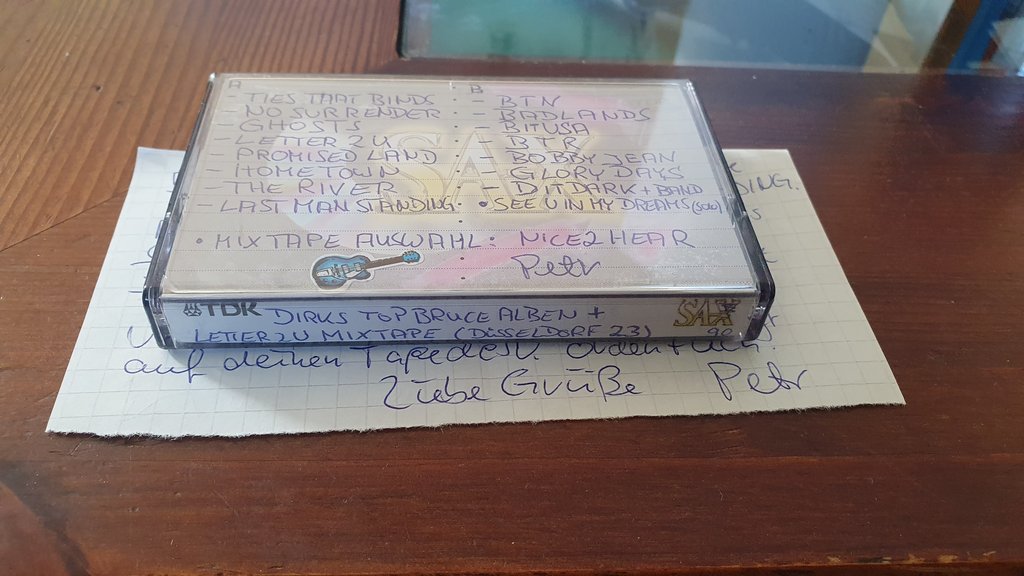 A
- TIES THAT BINDS
- NO SURRENDER
- GHOSTS
- LETTER 2 U
- PROMISED LAND
- HOMETOWN
- THE RIVER
- LAST MAN STANDING
B
- BTN
- BADLANDS
- BITUSA
- BTR
- BOBBY JEAN
- GLORY DAYS
- DITDARK + BAND
• SEE U IN MY DREAMS (solo)
• MIXTAPE AUSWAHL: NICE2HEAR
Petr
SAX
TDK DIRKS TOP BRUCE ALBEN + SAX
LETTER2U MIXTAPE (DÜSSELDORF 23) 90
auf deinen Tapedesk
Liebe Grüße Petr